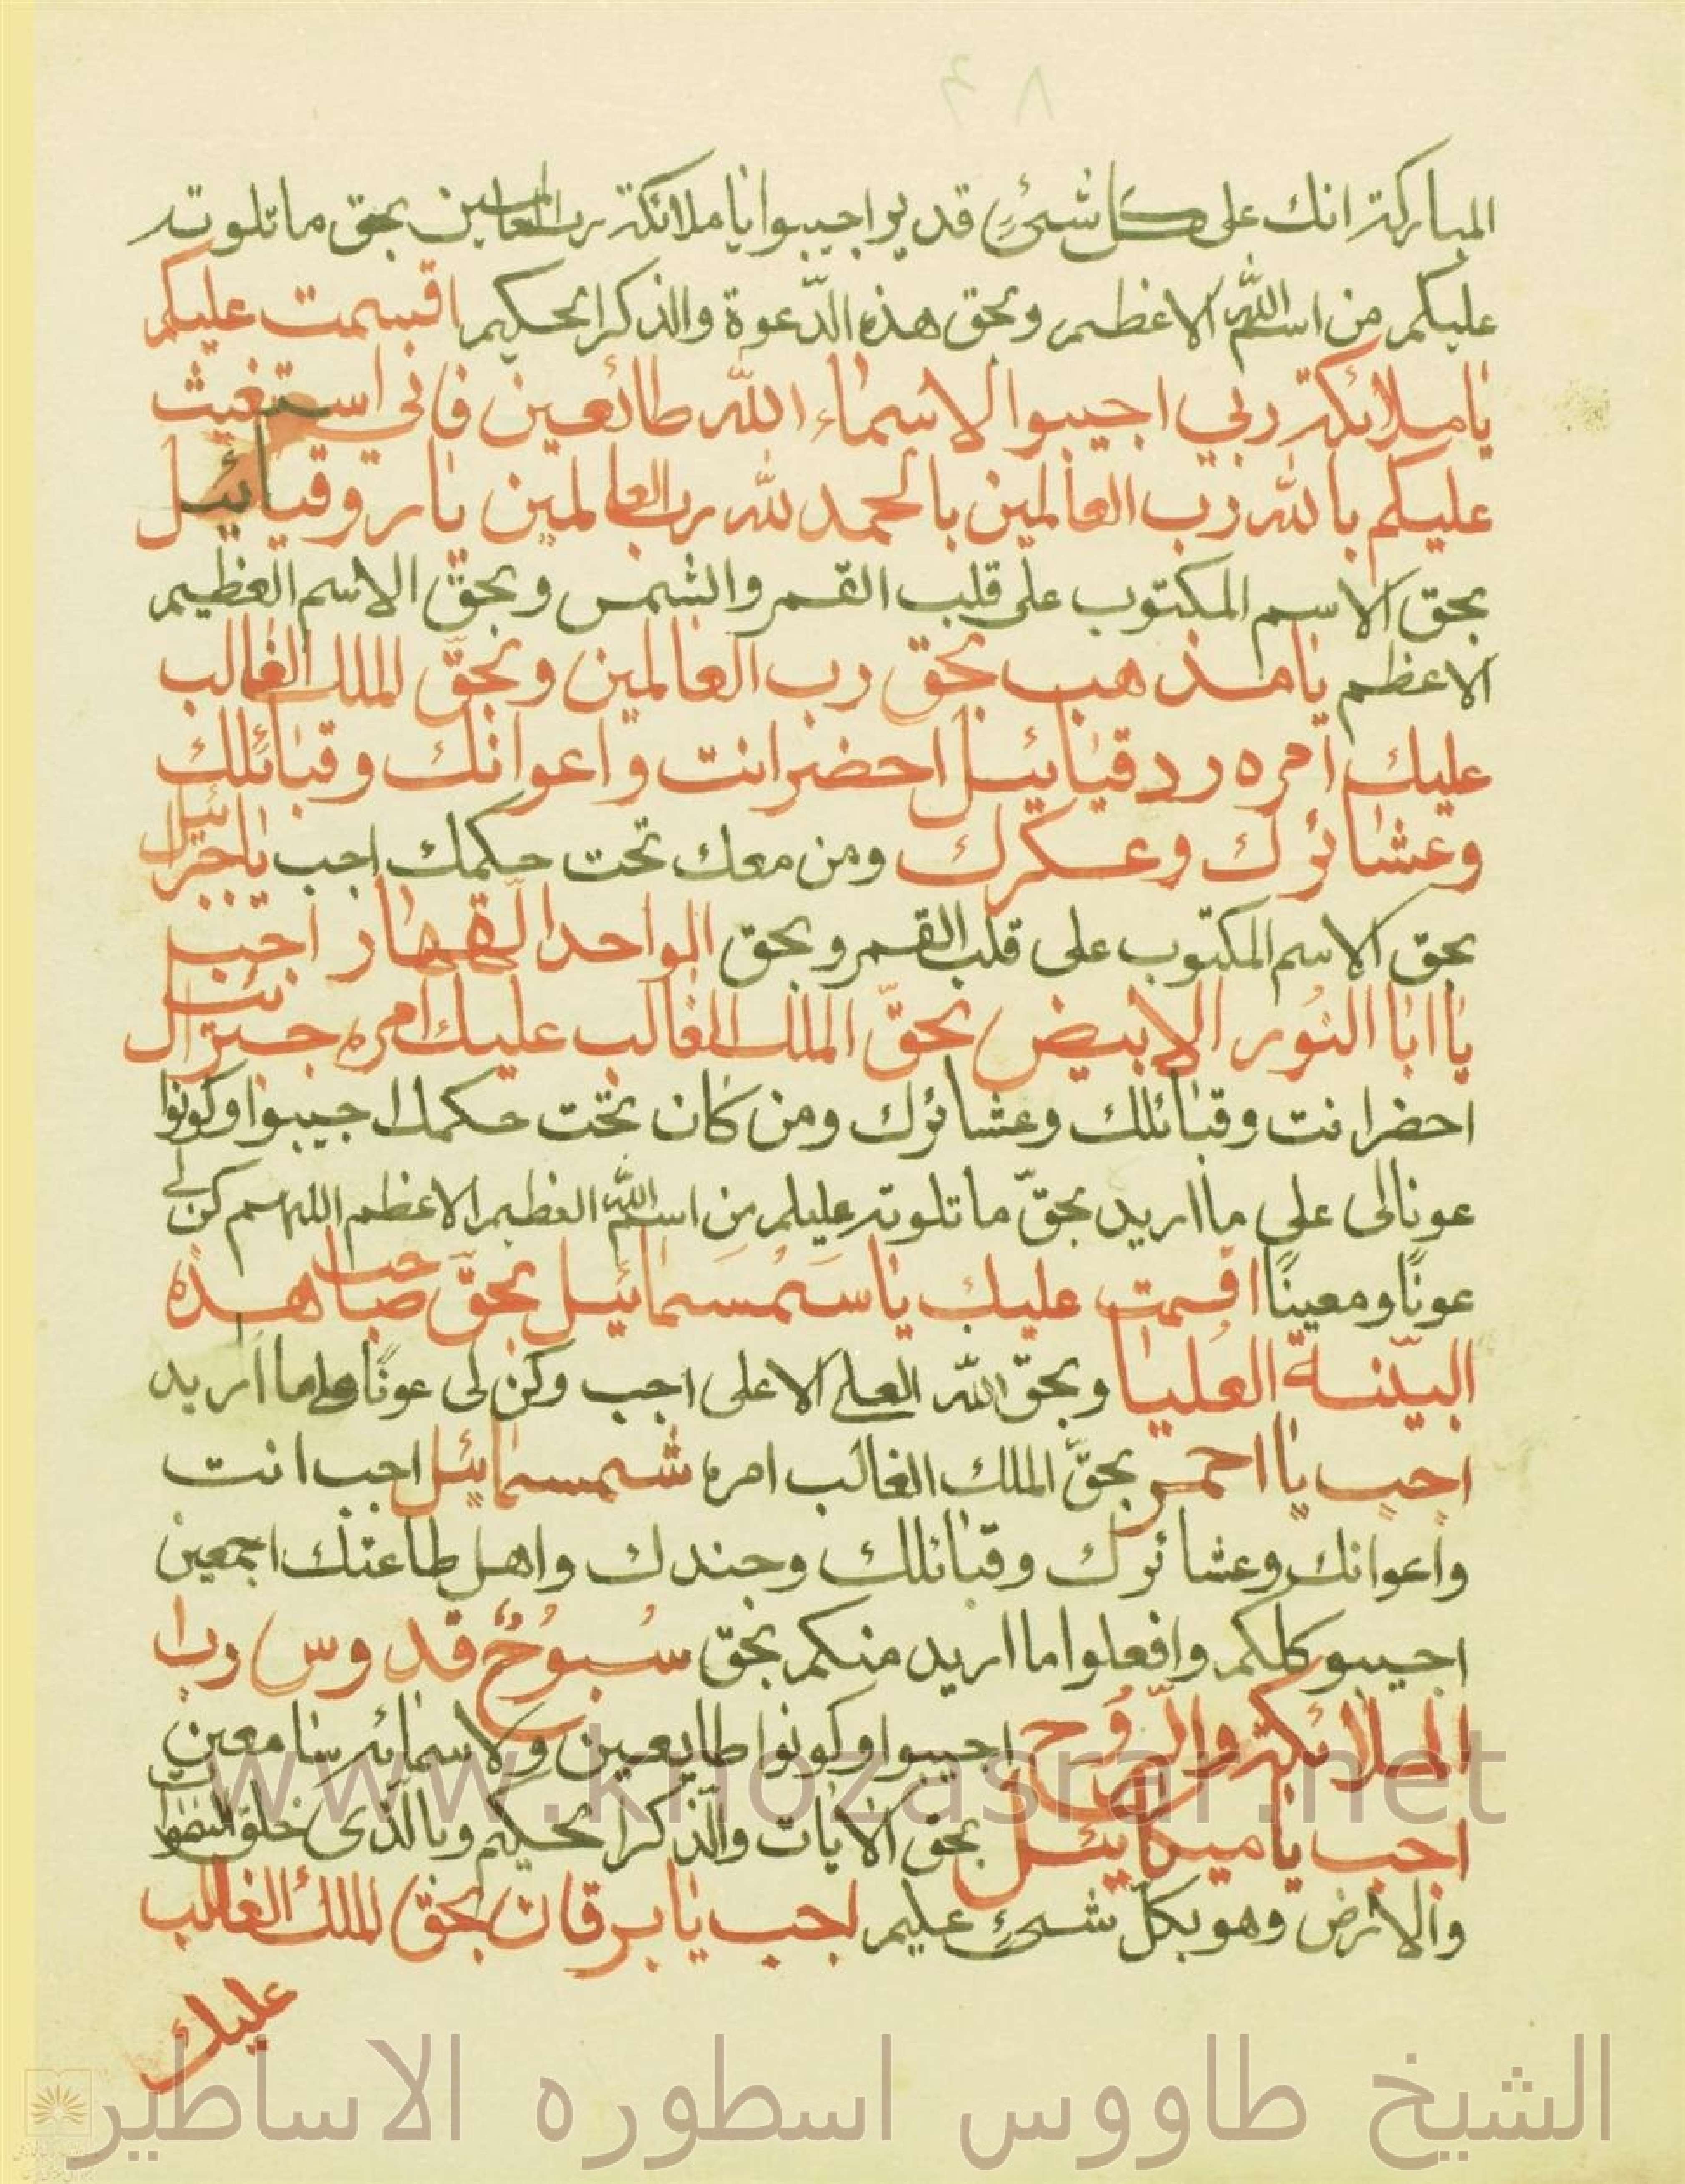 المباركة انك على كل شئ قدير اجيبوا يا ملائكة رب العالمين بحق ما تلوته
عليكم من اسم الله الاعظم وبحق هذه الدّعوة والذكر الحكيم اقسمت عليكم
يا ملائكة ربي اجيبوا لاسماء الله طائعين فاني استغيث
عليكم بالله رب العالمين بالحمد لله رب العالمين يا روقيائيل
بحق الاسم المكتوب على قلب القمر والشمس وبحق الاسم العظيم
الاعظم يا مذهب بحق رب العالمين وبحقّ الملك الغالب
عليك امره ردقيائيل احضر انت واعوانك وقبائلك
وعشائرك وعسكرك ومن معك تحت حكمك اجب يا جبرائيل
بحق الاسم المكتوب على قلب القمر وبحق الواحد القهار اجب
يا ابا النور الابيض بحقّ الملك الغالب عليك امره جبرائيل
احضر انت وقبائلك وعشائرك ومن كان تحت حكمك اجيبوا وكونوا
عونا لى على ما اريد بحقّ ما تلوته عليكم من اسم الله العظيم الاعظم اللهم كن لي
عونًا ومعينًا اقسمت عليك يا سَمُسَمائيل بحقّ صاحب هذه
البيّنة العُليا وبحقّ الله العلي الاعلى اجب وكن لى عونًا على ما اريد
اجب يا احمر بحقّ الملك الغالب امره شمسمائيل اجب انت
واعوانك وعشائرك وقبائلك وجندك واهل طاعتك اجمعين
اجيبو كلكم وافعلوا ما اريد منكم بحق سُبوُحٌ قدوس رب
الملائكة والرّوُح اجيبوا وكونوا طايعين ولاسمائه سامعين
اجب يا ميكائيل بحق الايات والذكر الحكيم وبالذى خلق السموات
والارض وهو بكل شئ عليم اجب يا برقان بحق الملك الغالب
عليك
www.khozasrar.net
الشيخ طاووس اسطوره الاساطير